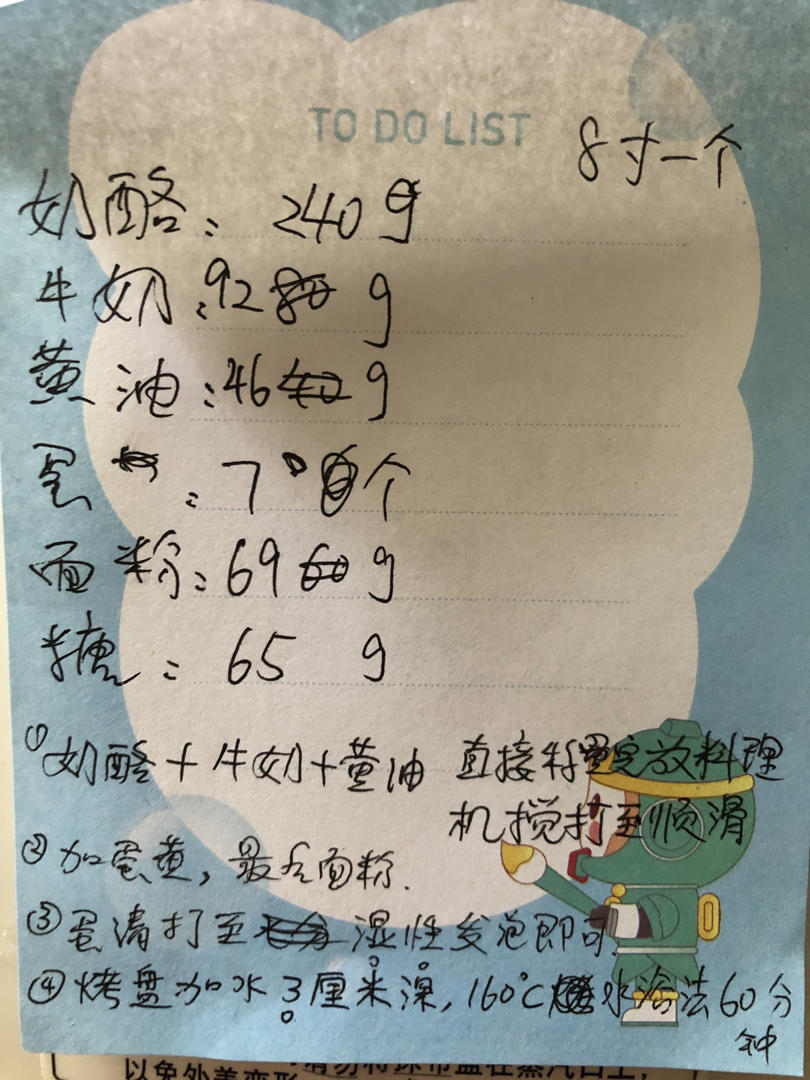 TO DO LIST
8寸一个
奶酪: 240g
牛奶:92 g
黄油:46 g
蛋 : 7 个
面粉:69 60 g
糖: 65 g
①奶酪+牛奶+黄油 直接称重完放料理
机搅打到顺滑
②加蛋黄,最后面粉.
③蛋清打至 湿性发泡即可.
④烤盘加水3厘米深,160℃水浴法60分
钟
以免外盖变形